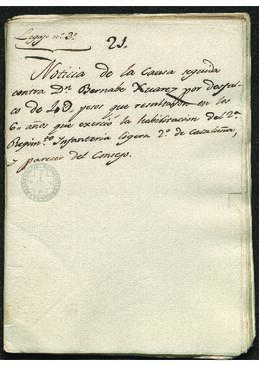 Legajo nº 3º
21.
Noticia de la Causa seguida
contra Dn. Bernabe Xuarez por desfal-
co de 40 pesos que resultaron en los
6 años que exerció la habilitacion del 2º
Regimto. Infanteria ligera 2º de Cataluña,
y parecer del Consejo.